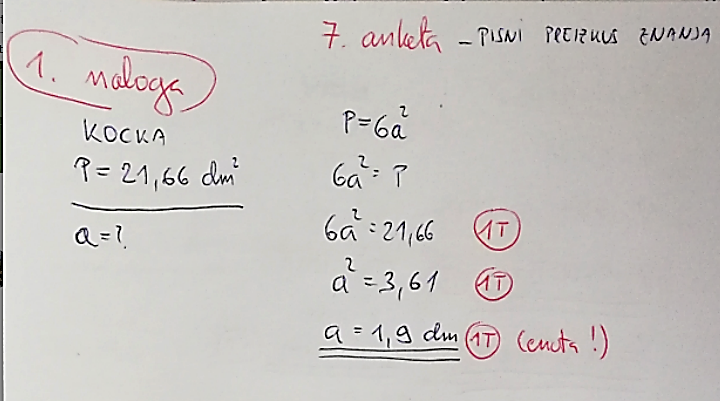 7. anketa - PISNI PREIZKUS ZNANJA
1. naloga
KOCKA
P = 21,66 dm²
a = ?
P = 6a²
6a² = P
6a² = 21,66 1T
a² = 3,61 1T
a = 1,9 dm 1T (enota!)